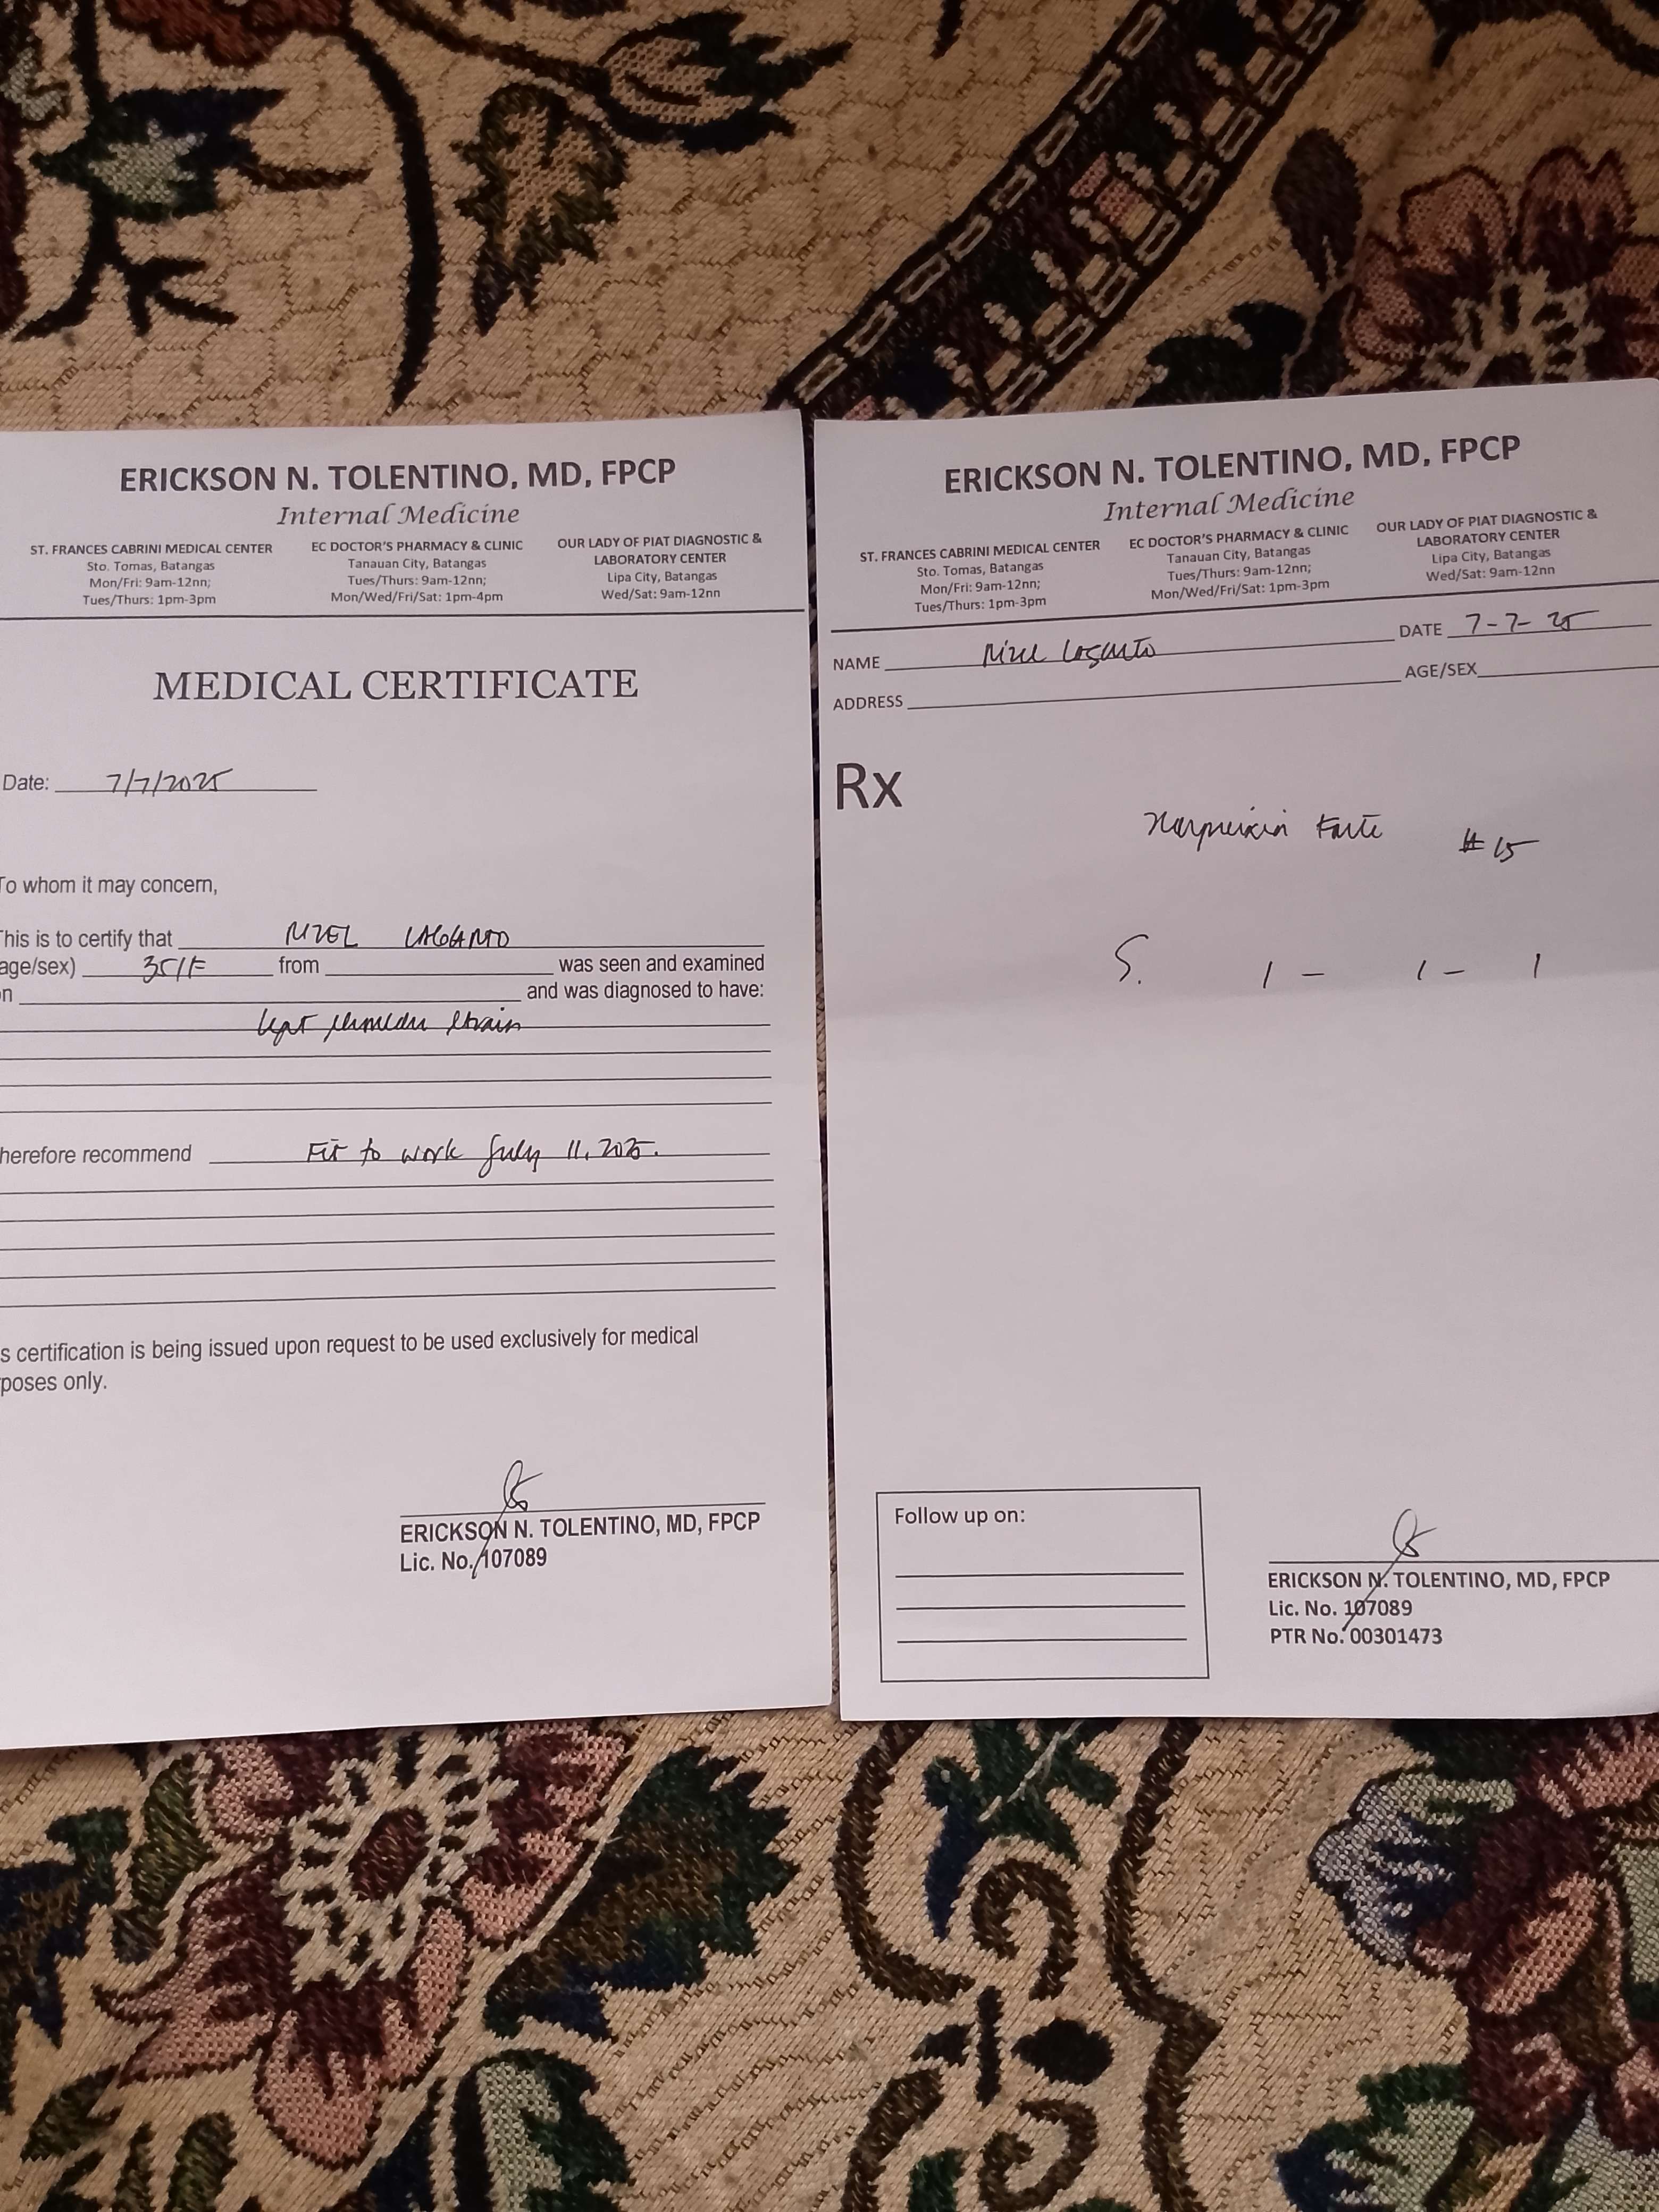 ERICKSON N. TOLENTINO, MD, FPCP
Internal Medicine
ST. FRANCES CABRINI MEDICAL CENTER
Sto. Tomas, Batangas
Mon/Fri: 9am-12nn;
Tues/Thurs: 1pm-3pm
EC DOCTOR'S PHARMACY & CLINIC
Tanauan City, Batangas
Tues/Thurs: 9am-12nn;
Mon/Wed/Fri/Sat: 1pm-4pm
OUR LADY OF PIAT DIAGNOSTIC &
LABORATORY CENTER
Lipa City, Batangas
Wed/Sat: 9am-12nn
MEDICAL CERTIFICATE
Date: 7/7/2025
To whom it may concern,
This is to certify that
age/sex) 35/F from was seen and examined
n and was diagnosed to have:
strain
herefore recommend Fit to work July 11, 2025.
s certification is being issued upon request to be used exclusively for medical
poses only.
ERICKSON N. TOLENTINO, MD, FPCP
Lic. No. 107089
ERICKSON N. TOLENTINO, MD, FPCP
Internal Medicine
ST. FRANCES CABRINI MEDICAL CENTER
Sto. Tomas, Batangas
Mon/Fri: 9am-12nn;
Tues/Thurs: 1pm-3pm
EC DOCTOR'S PHARMACY & CLINIC
Tanauan City, Batangas
Tues/Thurs: 9am-12nn;
Mon/Wed/Fri/Sat: 1pm-3pm
OUR LADY OF PIAT DIAGNOSTIC &
LABORATORY CENTER
Lipa City, Batangas
Wed/Sat: 9am-12nn
NAME DATE 7-7-25
ADDRESS AGE/SEX
Rx
Forte #15
S. 1 - 1 - 1
Follow up on:
ERICKSON N. TOLENTINO, MD, FPCP
Lic. No. 107089
PTR No. 00301473